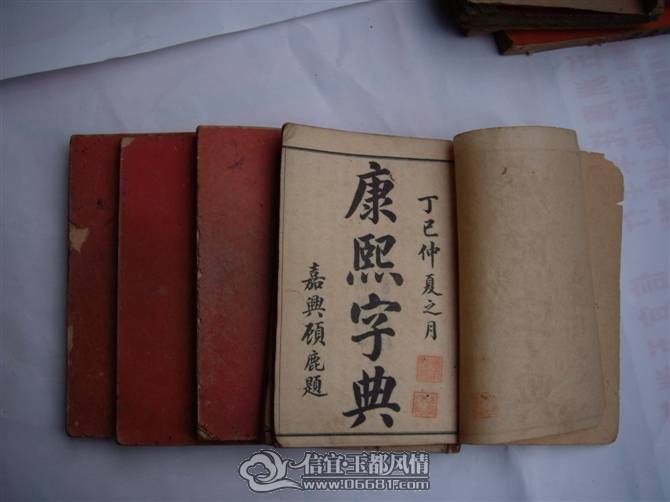 丁巳仲夏之月
康熙字典
嘉興顧鹿題
信宜·玉都风情
www.06681.com